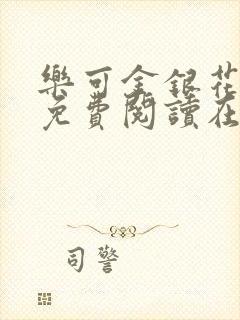 樂可金銀花
免費閱讀在
司警